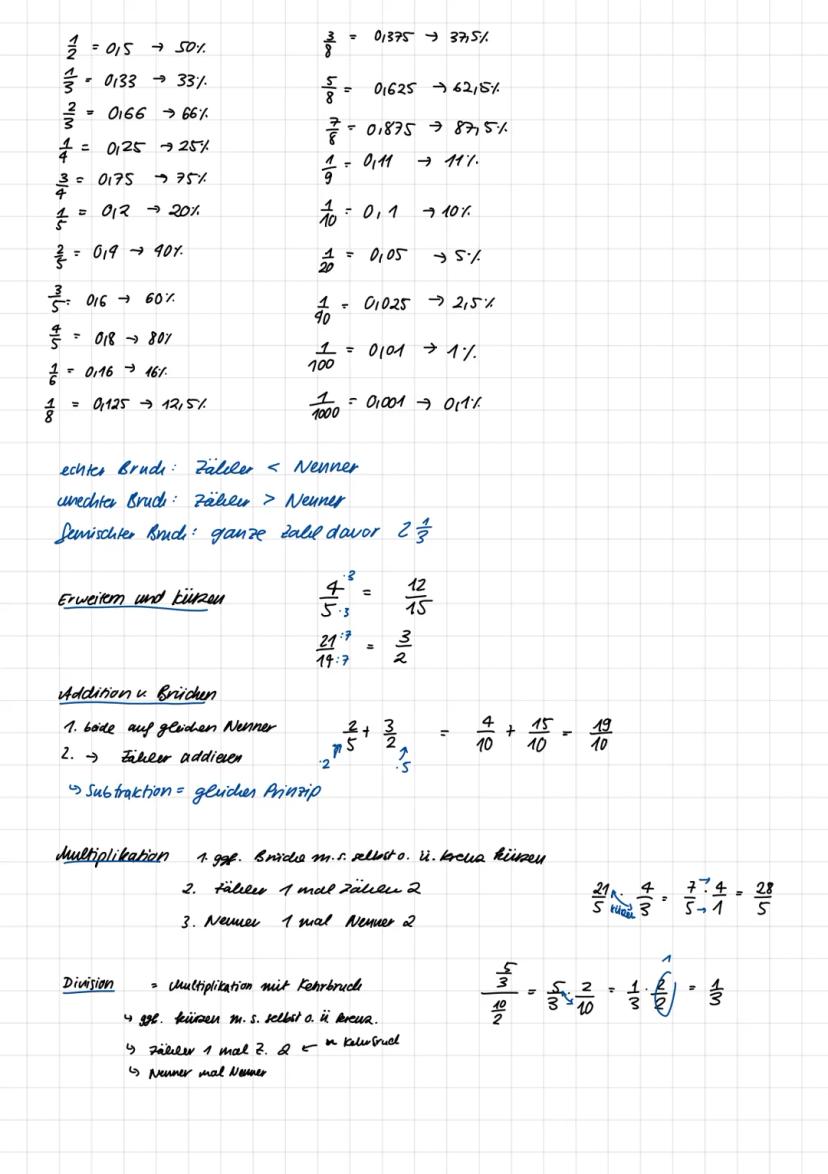 1/2 = 0,5 → 50%
1/3 = 0,33 → 33%
2/3 = 0,66 → 66%
1/4 = 0,25 → 25%
3/4 = 0,75 → 75%
1/5 = 0,2 → 20%
2/5 = 0,4 → 40%
3/5 = 0,6 → 60%
4/5 = 0,8 → 80%
1/6 = 0,16 → 16%
1/8 = 0,125 → 12,5%
3/8 = 0,375 → 37,5%
5/8 = 0,625 → 62,5%
7/8 = 0,875 → 87,5%
1/9 = 0,11 → 11%
1/10 = 0,1 → 10%
1/20 = 0,05 → 5%
1/40 = 0,025 → 2,5%
1/100 = 0,01 → 1%
1/1000 = 0,001 → 0,1%
echter Bruch: Zähler < Nenner
unechter Bruch: Zähler > Nenner
Gemischter Bruch: ganze Zahl davor 2 1/3
Erweitern und kürzen 4·3/5·3 = 12/15
21:7/14:7 = 3/2
Addition v. Brüchen
1. beide auf gleichen Nenner 2/5 + 3/2 = 4/10 + 15/10 = 19/10
2. → Zähler addieren ·2 ·5
↳ Subtraktion = gleiches Prinzip
Multiplikation 1. ggf. Brüche m. s. selbst o. ü. kreuz kürzen
2. Zähler 1 mal Zähler 2 21/5 · 4/3 = 7/5 · 4/1 = 28/5
kürzen
3. Nenner 1 mal Nenner 2
Division = Multiplikation mit Kehrbruch 5/3 / 10/2 = 5/3 · 2/10 = 1/3 · 2/2 = 1/3
1
↳ ggf. kürzen m. s. selbst o. ü kreuz.
↳ Zähler 1 mal Z. 2 ← Kehrbruch
↳ Nenner mal Nenner